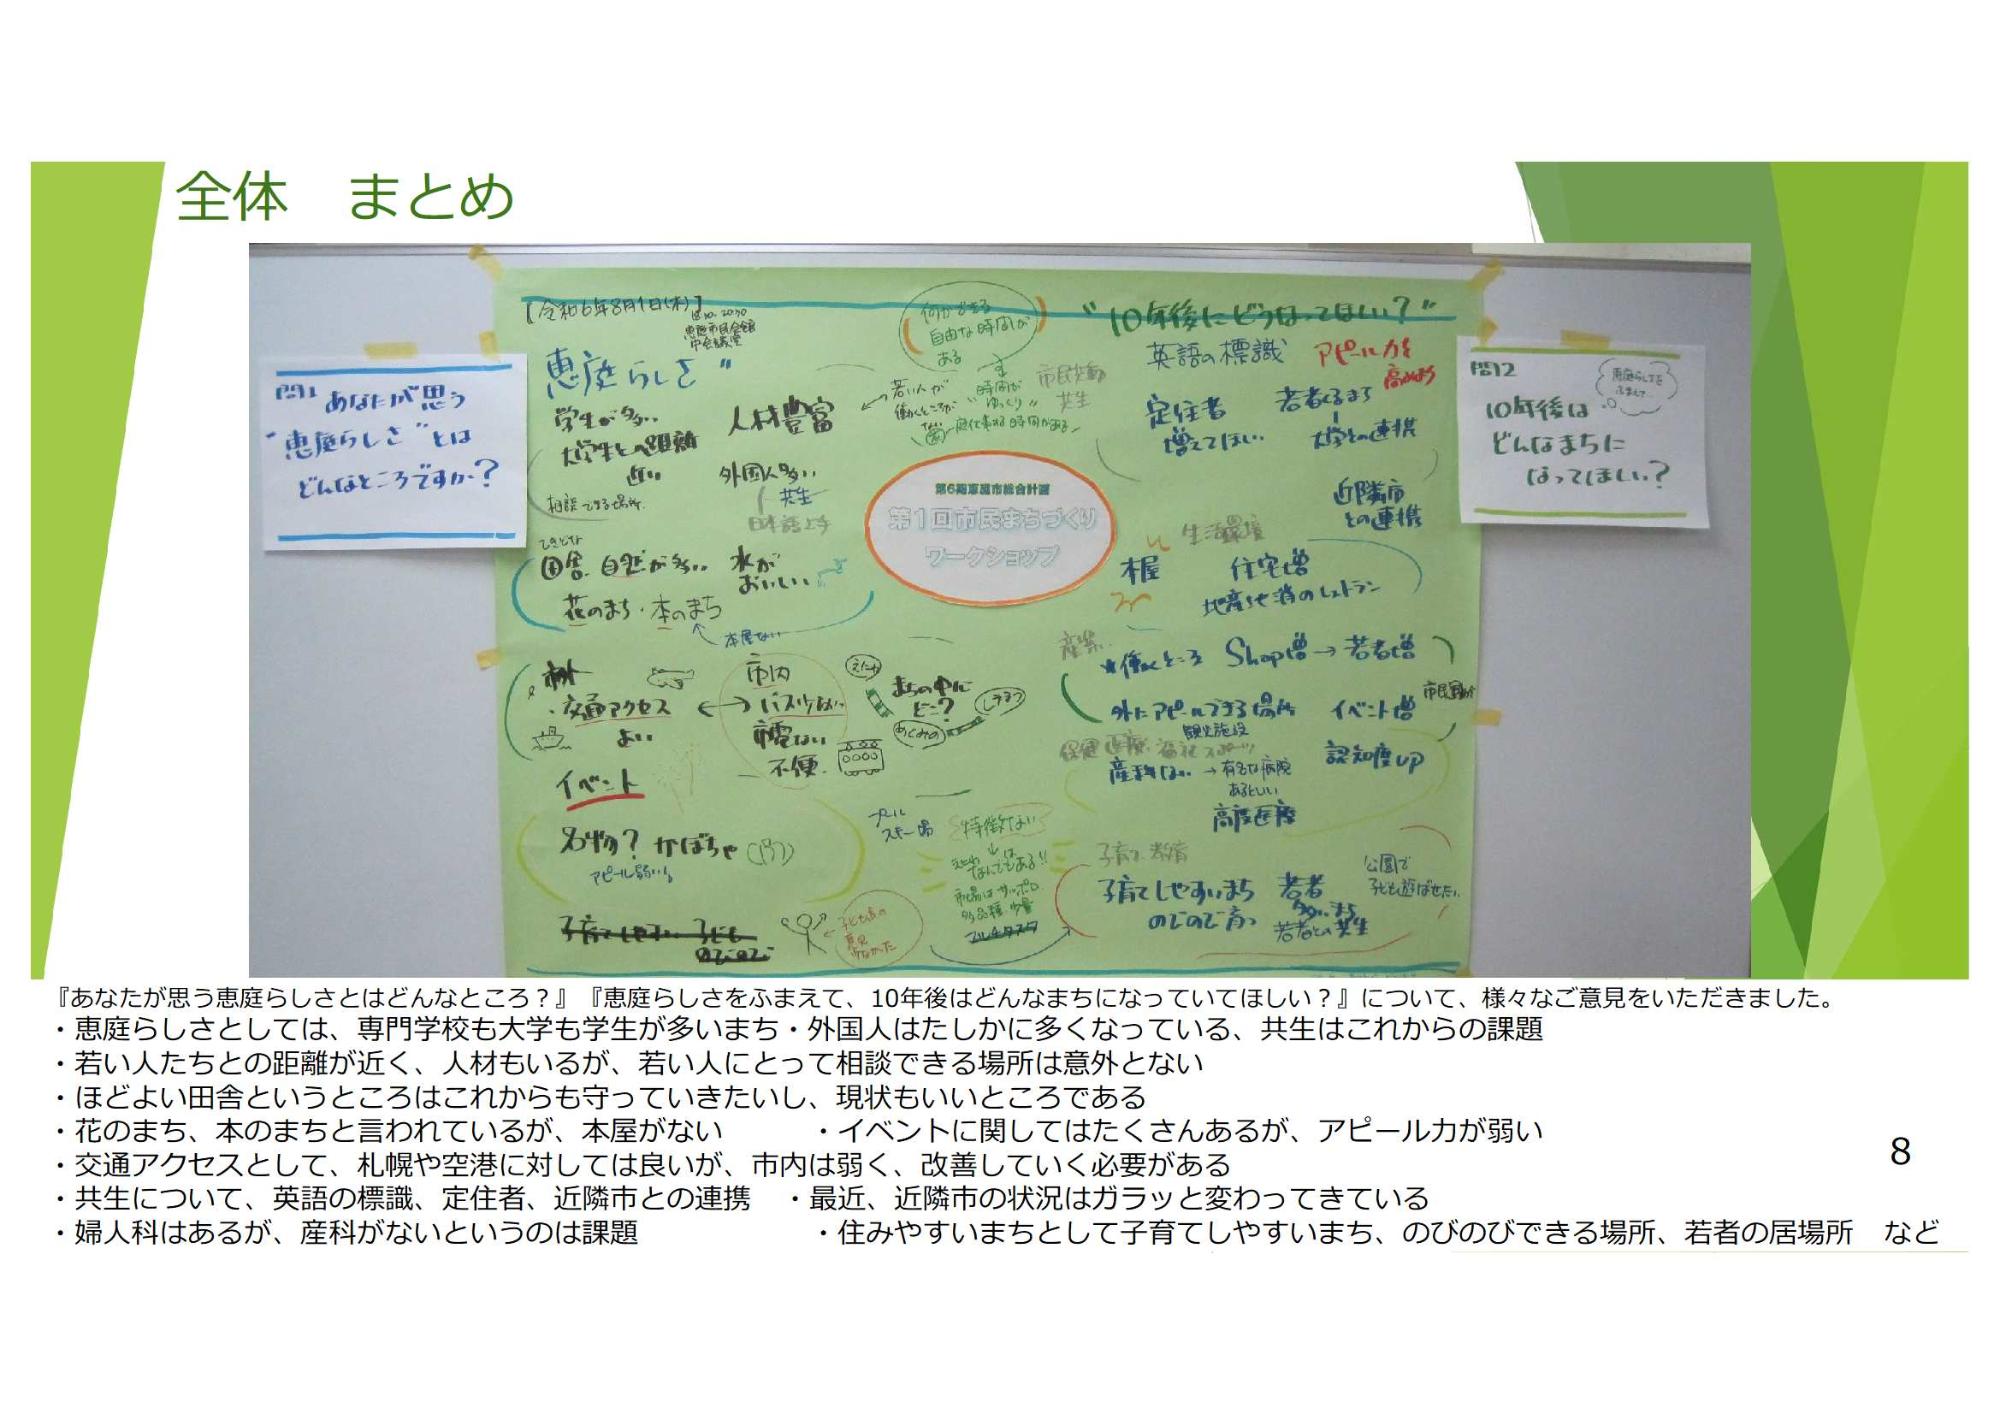 全体　まとめ
【令和6年8月1日(木)】
18:30-20:30
恵庭市民会館
中会議室
問1
あなたが思う
"恵庭らしさ"とは
どんなところですか?
恵庭らしさ"
学生が多い
大学生との距離
近い
相談できる場所
人材豊富
外国人多い
共生
日本語上手
田舎 自然が多い
水が
おいしい
花のまち・本のまち
本屋ない
市外
交通アクセス
よい
市内
バス少ない
市電ない
不便
まちの中に
どこ?
イベント
名物? かぼちゃ
アピール弱い
子育てしやすい 子ども
のびのび
何かできる
自由な時間が
ある
若い人が
働くところが
ない
時間が
"ゆっくり"
市民活動
共生
第6期恵庭市総合計画
第1回市民まちづくり
ワークショップ
プール
スキー場
特徴ない
なんでもある!!
市場はサッポロ
多品種 少量
マルチタスク
"10年後にどうなってほしい?"
英語の標識
アピール力を
高めよう
定住者
増えてほしい
若者くるまち
大学との連携
近隣市
との連携
生活環境
本屋
住宅増
地産地消のレストラン
産業
★働くところ Shop増→若者増
外にアピールできる場所
観光施設
イベント増
保健 医療 福祉 スポーツ
産科ない→有名な病院
あるといい
認知度UP
高度医療
子育て 教育
子育てしやすいまち
のびのび育つ
若者
多いまち
若者との共生
公園で
子ども遊ばせたい
問2
恵庭らしさを
ふまえて…
10年後は
どんなまちに
なってほしい?
『あなたが思う恵庭らしさとはどんなところ？』『恵庭らしさをふまえて、10年後はどんなまちになっていてほしい？』について、様々なご意見をいただきました。
・恵庭らしさとしては、専門学校も大学も学生が多いまち・外国人はたしかに多くなっている、共生はこれからの課題
・若い人たちとの距離が近く、人材もいるが、若い人にとって相談できる場所は意外とない
・ほどよい田舎というところはこれからも守っていきたいし、現状もいいところである
・花のまち、本のまちと言われているが、本屋がない　　　・イベントに関してはたくさんあるが、アピール力が弱い
・交通アクセスとして、札幌や空港に対しては良いが、市内は弱く、改善していく必要がある
・共生について、英語の標識、定住者、近隣市との連携　・最近、近隣市の状況はガラッと変わってきている
・婦人科はあるが、産科がないというのは課題　　　　　　・住みやすいまちとして子育てしやすいまち、のびのびできる場所、若者の居場所　など
8